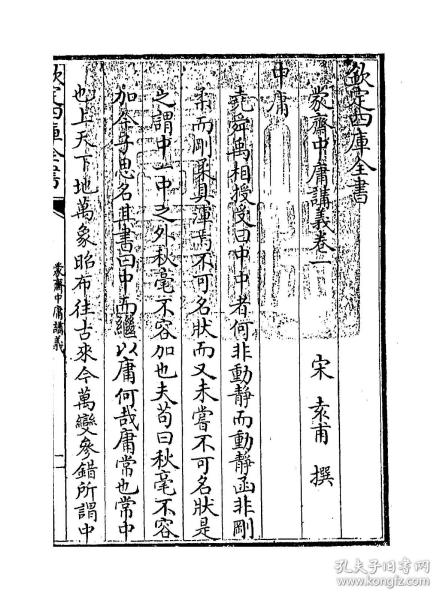 欽定四庫全書
蒙齋中庸講義卷一
宋 袁甫 撰
中庸
堯舜禹相授受曰中中者何非動靜而動靜函非剛
柔而剛柔具渾焉不可名狀而又未嘗不可名狀是
之謂中一中之外秋毫不容加也夫苟曰秋毫不容
加矣子思名其書曰中而繼以庸何哉庸常也常中
也上天下地萬象昭布往古來今萬變參錯所謂中
欽定四庫全書
蒙齋中庸講義
一
孔夫子旧书网